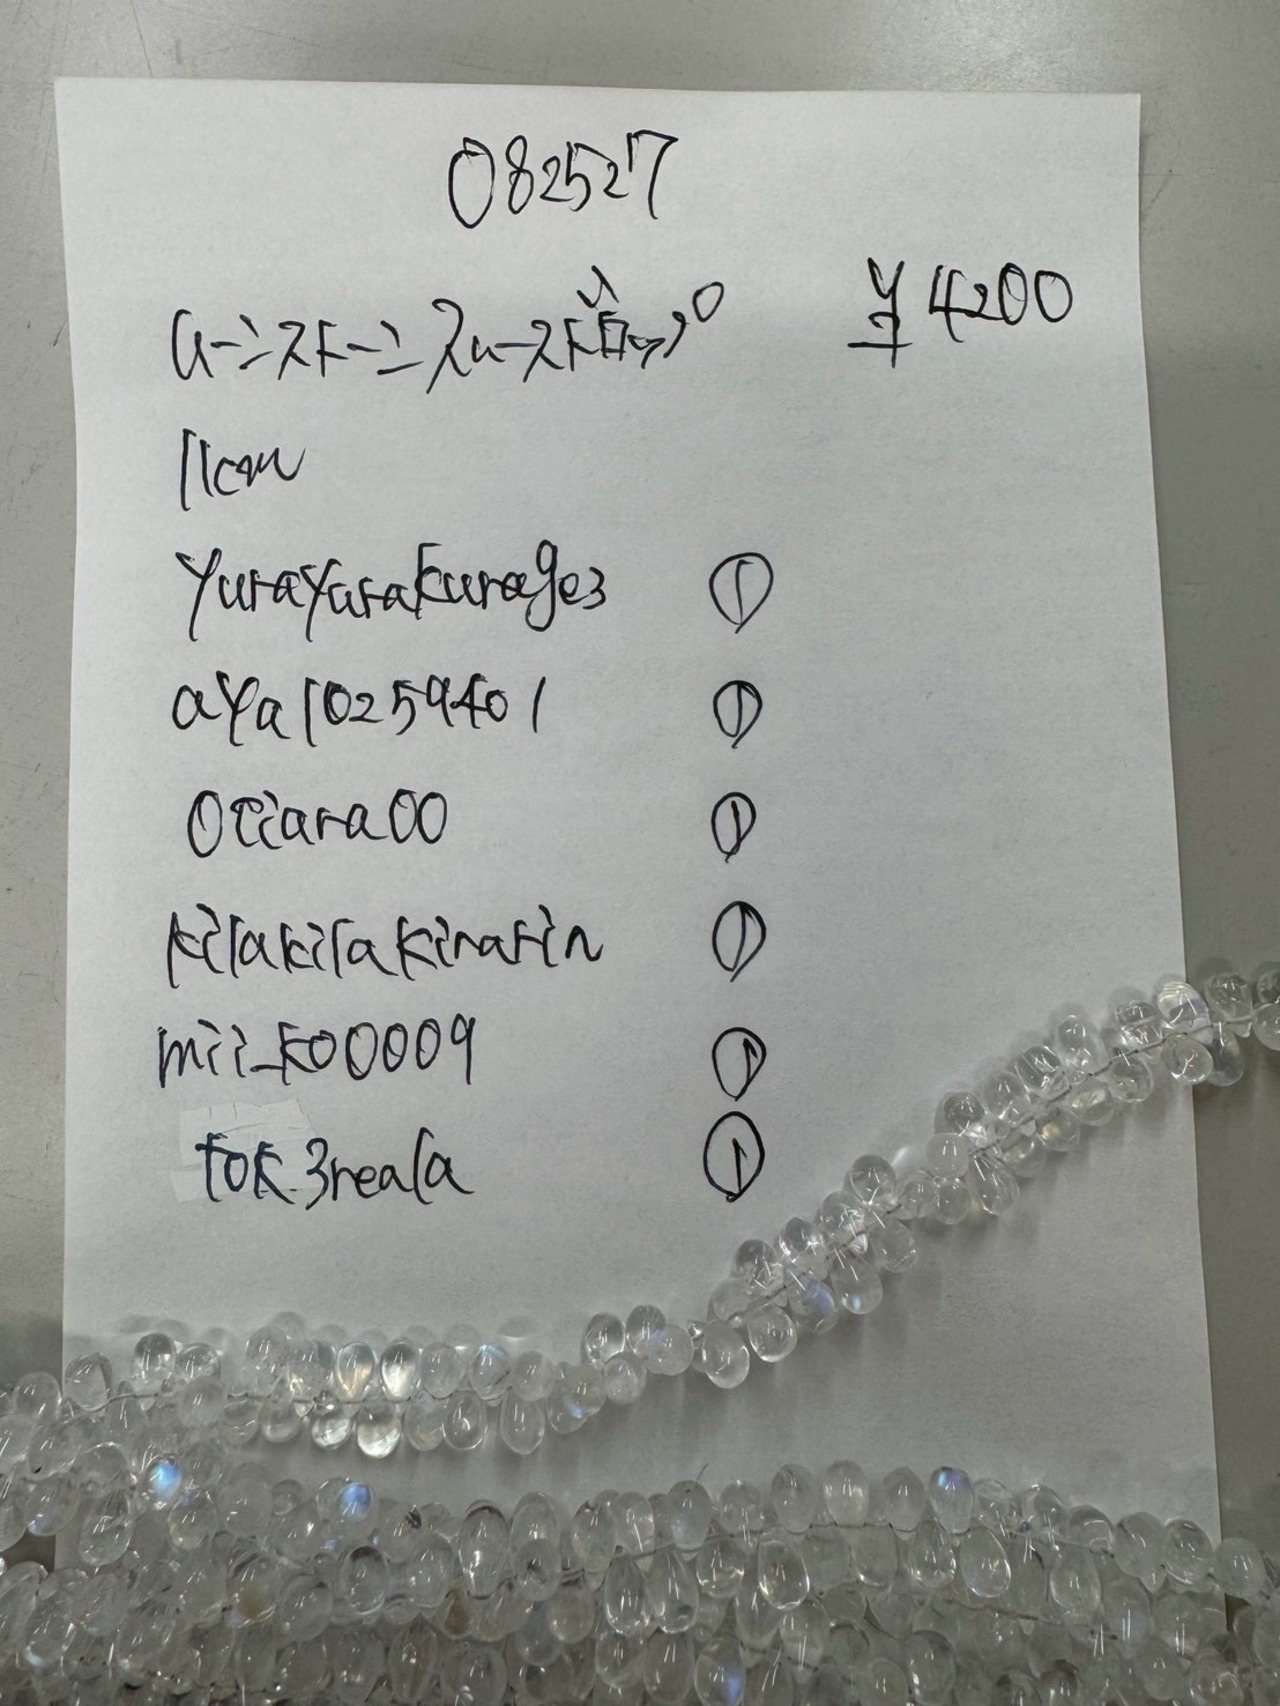 082527
ムーンストーンスムースドロップ ¥4200
11cm
yurayurakurage3
aya10259401
otiara00
kilakilakirarin
mii_k00009
tok.3reala